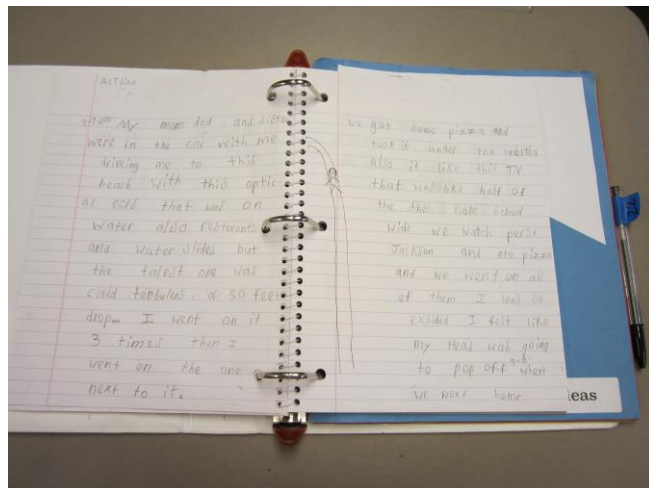 Action
My mom dad and sister
were in the car with me
driveing me to this
beach with this optic-
al cors that was on
water also resterants
and water slides but
the talest one was
calld terbulens a 50 feet
drop... I went on it
3 times then I
went on the one
next to it.
we got some pizza and
took it under the umbrela
also it like this TV
that was like half of
the the hole school
wide we watch perse
Jackson and ate pizza
and we went on all
of them I was so
exsided I felt like
my head was going
to pop off when
we went home
eas